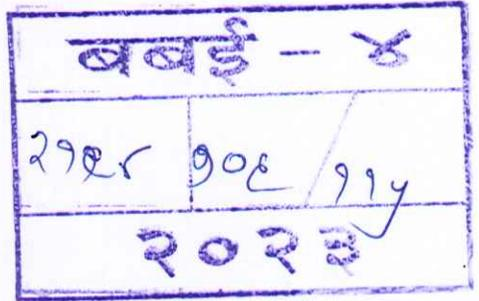 बबई - ४
२१९४ १०६ / ११५
२०२३